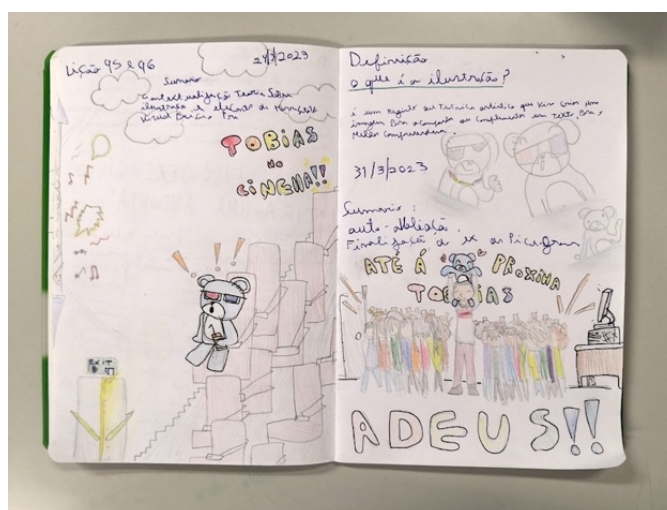 Lição 95 e 96
24/3/2023
Sumario
Contextualização Teorica Sobre
ilustração e elementos da
Visual
TOBIAS
no
CINEMA!!
EXIT
Definição
o que é a ilustração?
é um registo ou Tecnica artistica que Vem criar uma
imagem Para acompanhar ou complementar um Texto, Para
Melhor compreender.
31/3/2023
Sumario :
auto-avaliação.
Finalização de ex
ATÉ Á PROXIMA
TOBIAS
ADEUS!!